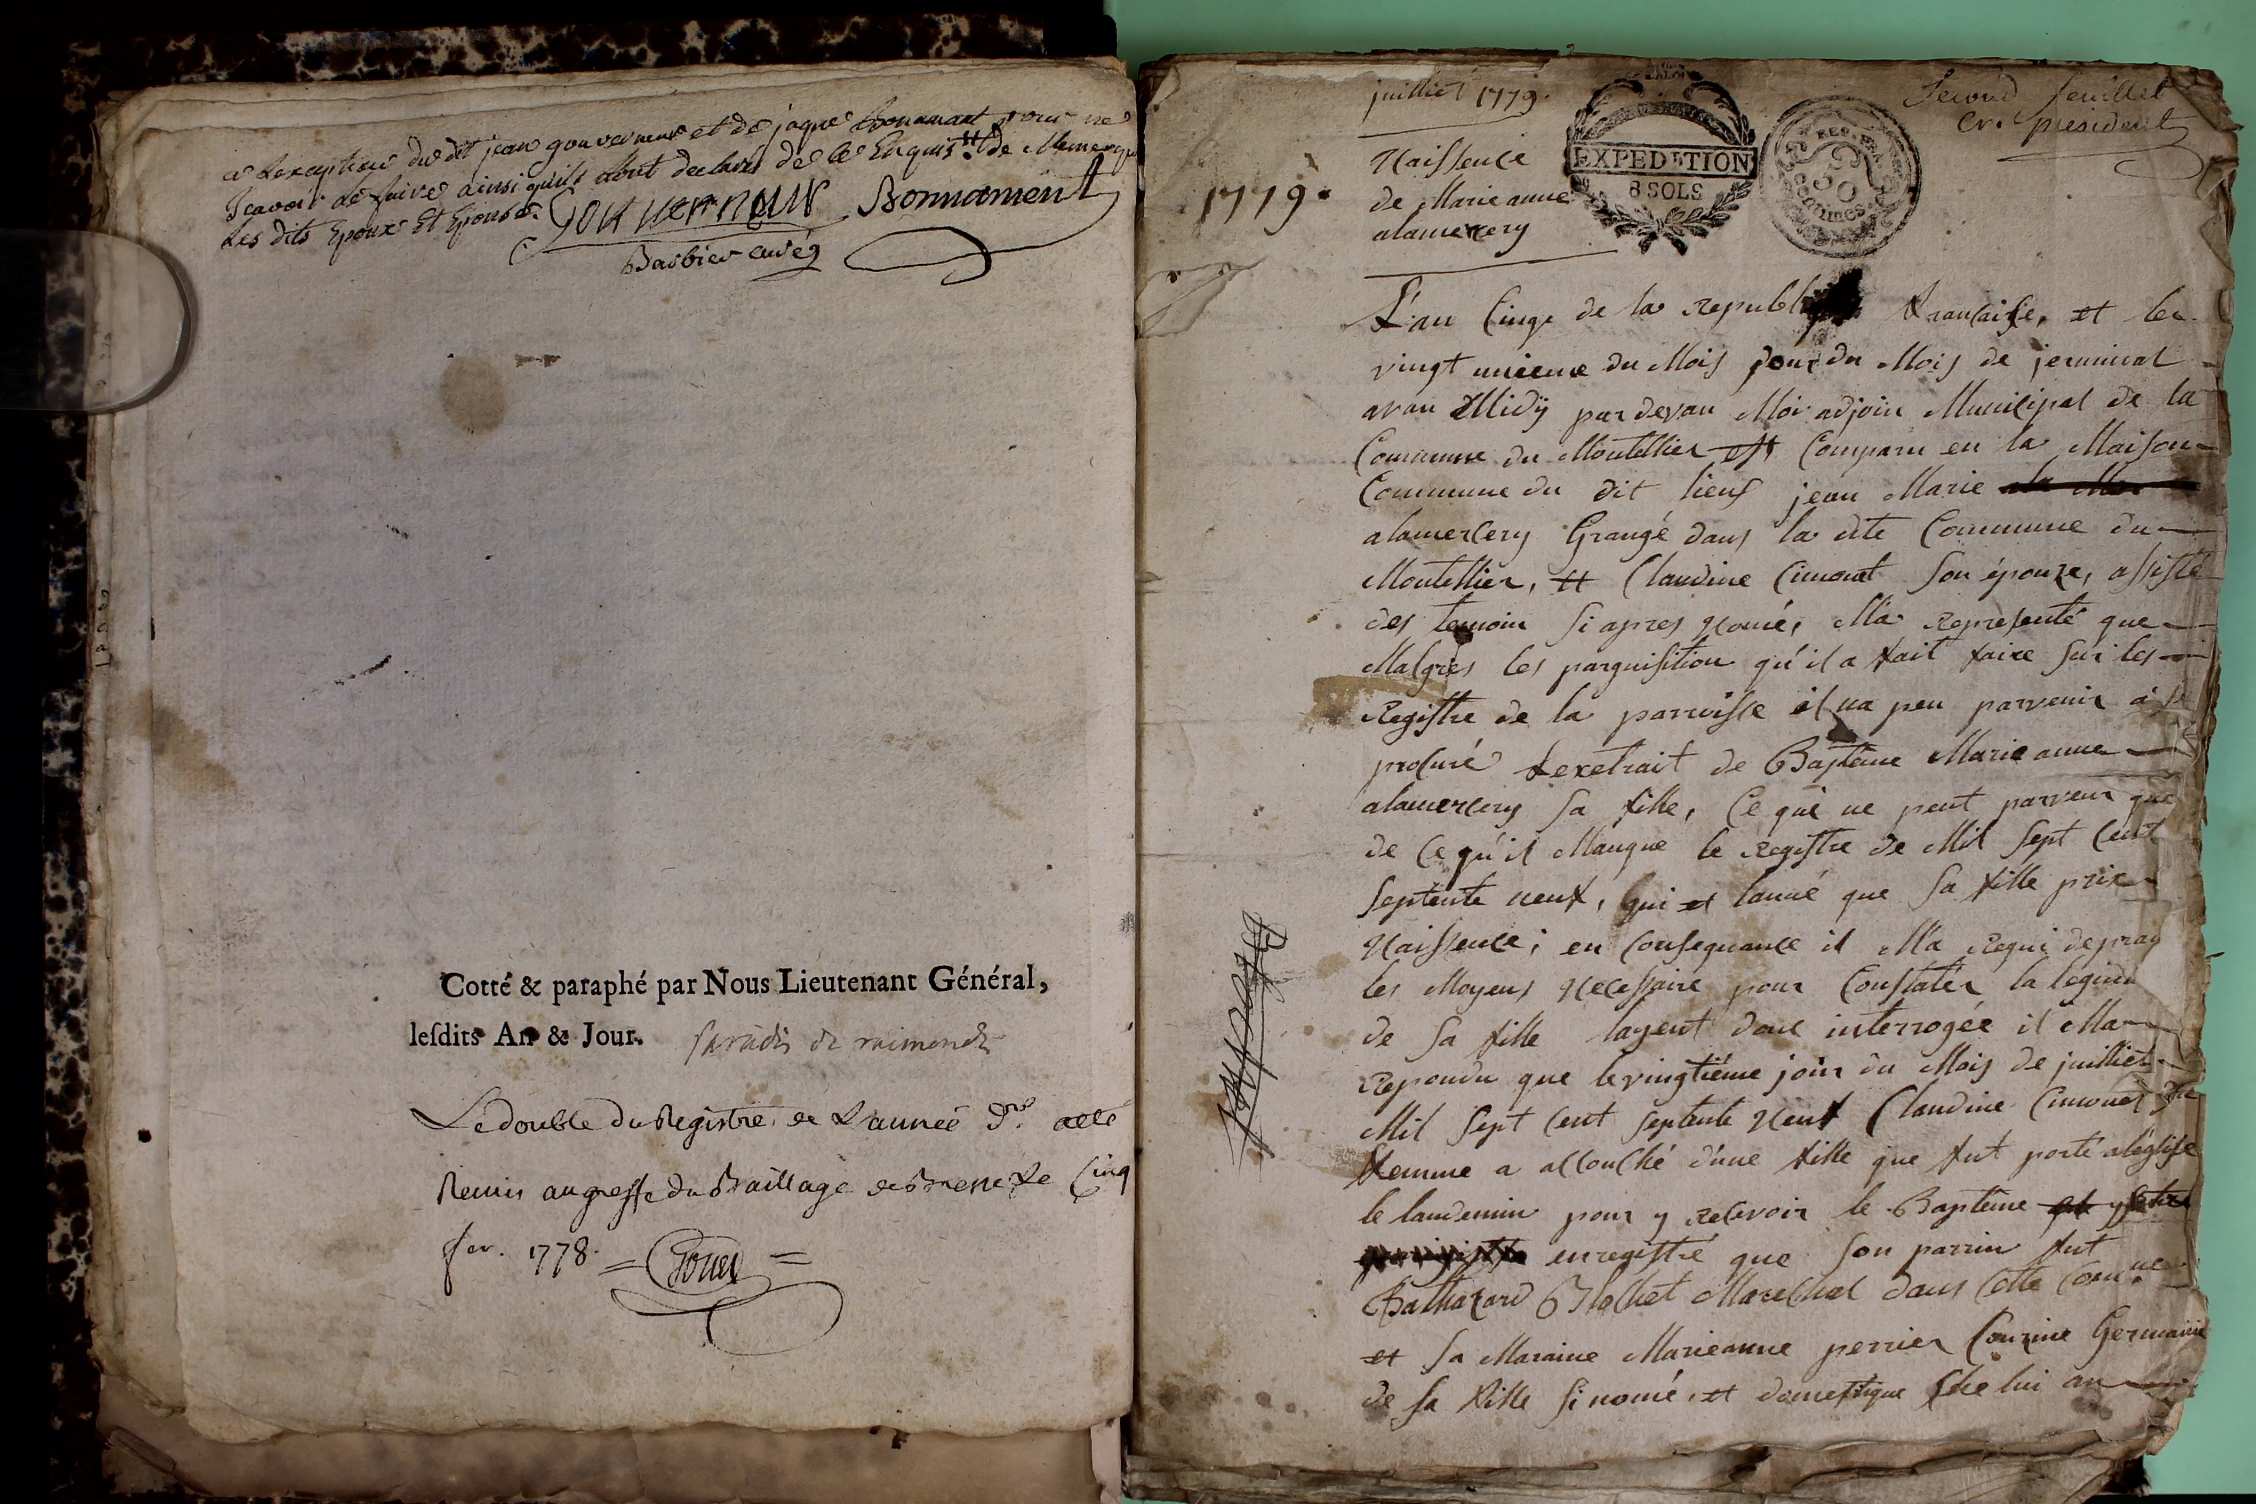 a lexception du dit jean gouverneur et de jaque Bonnamant pour ne
scavoir le faire ainsi quils l'ont declaré de ce Enquis
les dits Epoux et Epouse. Gouverneur Bonnament
Barbier curé
Cotté & paraphé par Nous Lieutenant Général,
leſdits An & Jour. paradis de raimondis
Le double du Registre de L'année dre. a été
Remis au greffe du Baillage de Bresse Le Cinq
fer. 1778.
juilliet 1779.
Second feuillet
cr. president
1779.
Naissence
de Marie anne
alamercery
EXPEDITION
8 SOLS
REP. FRA.
50
Centimes
L'an Cinqe de la republ francaise, et le
vingt unieme du Mois jour du Mois de jerminal
avan Midÿ par devan Moi adjoin Municipal de la
Commune du Montellier est Comparu en la Maison
Commune du dit lieus jean Marie
alamercery Grangé dans la dite Commune du
Montellier, et Claudine Cimonet son épouze, assisté
des temoin si apres nomé, M'a representé que
Malgres les parquisition qu'il a fait faire sur les
Registre de la parroisse il na peu parvenir à se
procuré lexetrait de Baptême Marie anne
alamercery sa fille, Ce qui ne peut parvenir que
de Ce qu'il Manque le Registre de Mil sept Cent
septente neuf, qui et lanné que sa fille prix
Naissence; en Consequance il M'a Requi de
les Moyens Necessaire pour Constater la
de sa fille layent donc interrogée il Ma
Repondu que le vingtième jour du Mois de juilliet
Mil sept Cent septente Neuf Claudine Cimonet sa
femme a accouché d'une fille que fut porté a léglise
le landemin pour y recevoir le Baptême
enregistré que son parrin fut
Balthazard Blochet Marechal dans Cette Comune
et sa Maraine Marieanne perrier Couzine Germaine
de sa fille si nomé et domestique Che lui an